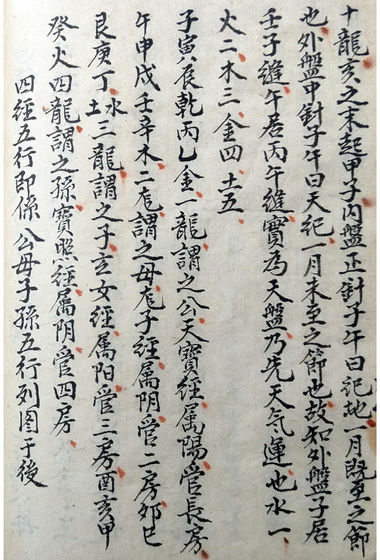 十龍亥之末起甲子內盤正針子午曰記地一月既至之節
也外盤中針子午曰天記一月未至之節也故知外盤子居
壬子縫午居丙午縫實為天盤乃先天氣運也水一
火二木三金四土五
子寅辰乾丙乙金一龍謂之公天寶經属陽管長房
午申戌壬辛木二龙謂之母龙子經属阴管二房卯巳
艮庚丁水土三龍謂之子玄女經属阳管三房酉亥甲
癸火四龍謂之孫寶照經属阴管四房
四經五行即係公母子孫五行列图于後